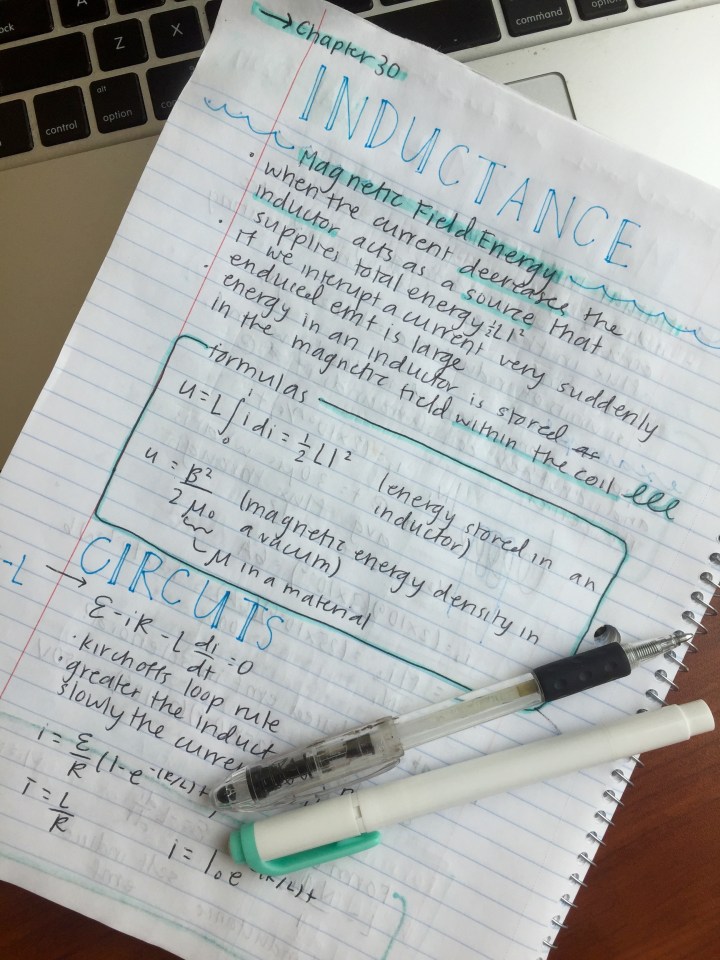 A
Z
X
control
alt
option
command
option
→ Chapter 30
INDUCTANCE
Magnetic Field Energy
• when the current decreases the
inductor acts as a source that
supplies total energy ½LI²
• If we intrupt a current very suddenly
enduced emf is large
• energy in an inductor is stored
in the magnetic field within the coil
formulas
u = L∫₀ⁱ i di = ½LI² (energy stored in an
inductor)
u = B²/2μ₀ (magnetic energy density in
a vacum)
μ in a material
-L → CIRCUTS
ε - iR - L di/dt = 0
• kirchoffs loop rule
• greater the induct
slowly the curre
i = ε/R (1-e^-(R/L)t
τ = L/R
i = I₀e^(R/L)t